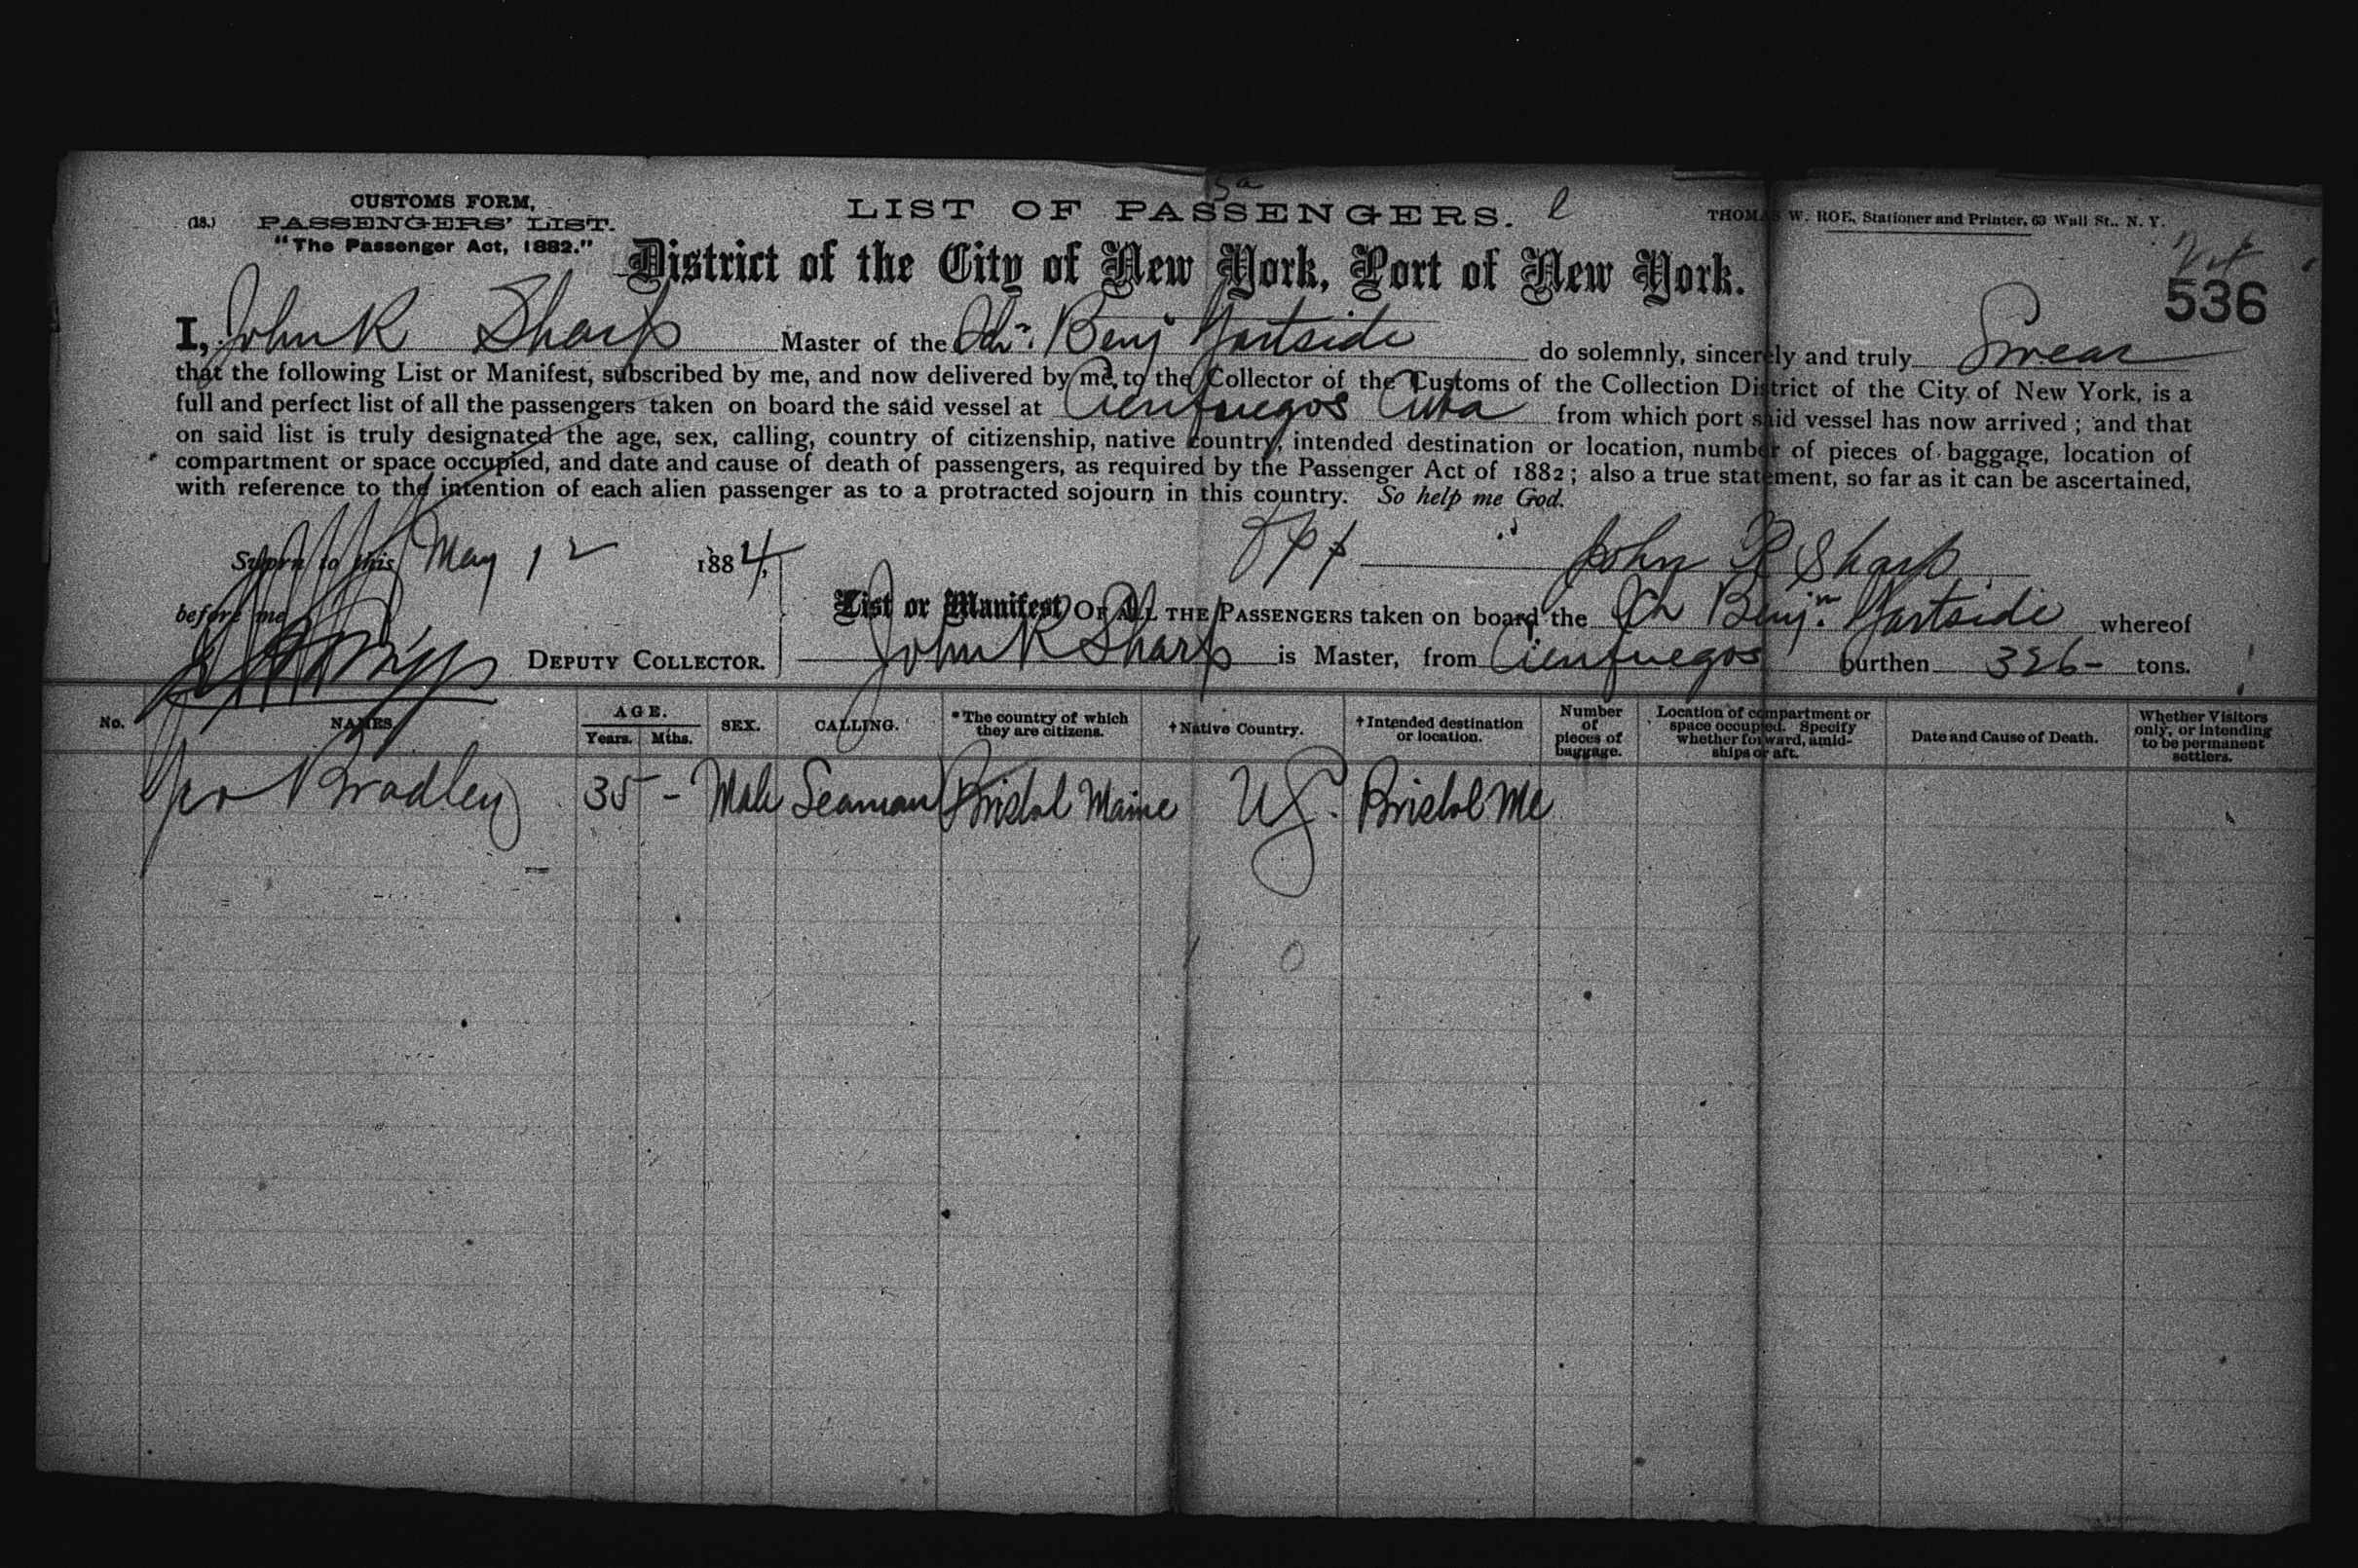 CUSTOMS FORM,
(18.) PASSENGERS' LIST.
"The Passenger Act, 1882."
LIST OF PASSENGERS.
THOMAS W. ROE, Stationer and Printer, 63 Wall St., N. Y.
District of the City of New York, Port of New York.
536
I, John R Sharp Master of the Schr. Benj Gartside do solemnly, sincerely and truly Swear
that the following List or Manifest, subscribed by me, and now delivered by me, to the Collector of the Customs of the Collection District of the City of New York, is a
full and perfect list of all the passengers taken on board the said vessel at Cienfuegos Cuba from which port said vessel has now arrived; and that
on said list is truly designated the age, sex, calling, country of citizenship, native country, intended destination or location, number of pieces of baggage, location of
compartment or space occupied, and date and cause of death of passengers, as required by the Passenger Act of 1882; also a true statement, so far as it can be ascertained,
with reference to the intention of each alien passenger as to a protracted sojourn in this country. So help me God.
Sworn to this May 12 1884,
John R Sharp
before me
DEPUTY COLLECTOR.
List or Manifest OF ALL THE PASSENGERS taken on board the Sch Benjn. Gartside whereof
John R Sharp is Master, from Cienfuegos burthen 326- tons.
No. NAMES. AGE. Years. Mths. SEX. CALLING. *The country of which they are citizens. †Native Country. †Intended destination or location. Number of pieces of baggage. Location of compartment or space occupied. Specify whether forward, amidships or aft. Date and Cause of Death. Whether Visitors only, or intending to be permanent settlers.
Bradley 35 - Male Seaman Bristol Maine U.S. Bristol Me